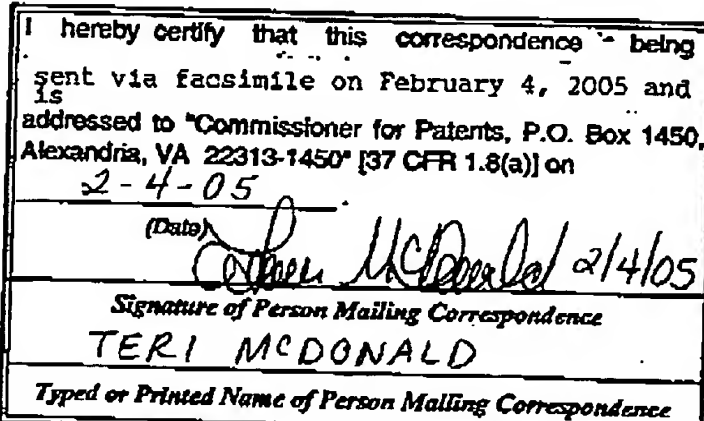 I hereby certify that this correspondence - being
sent via facsimile on February 4, 2005 and
is
addressed to "Commissioner for Patents, P.O. Box 1450,
Alexandria, VA 22313-1450" [37 CFR 1.8(a)] on
2-4-05
(Date)
McDonald 2/4/05
Signature of Person Mailing Correspondence
TERI MCDONALD
Typed or Printed Name of Person Mailing Correspondence